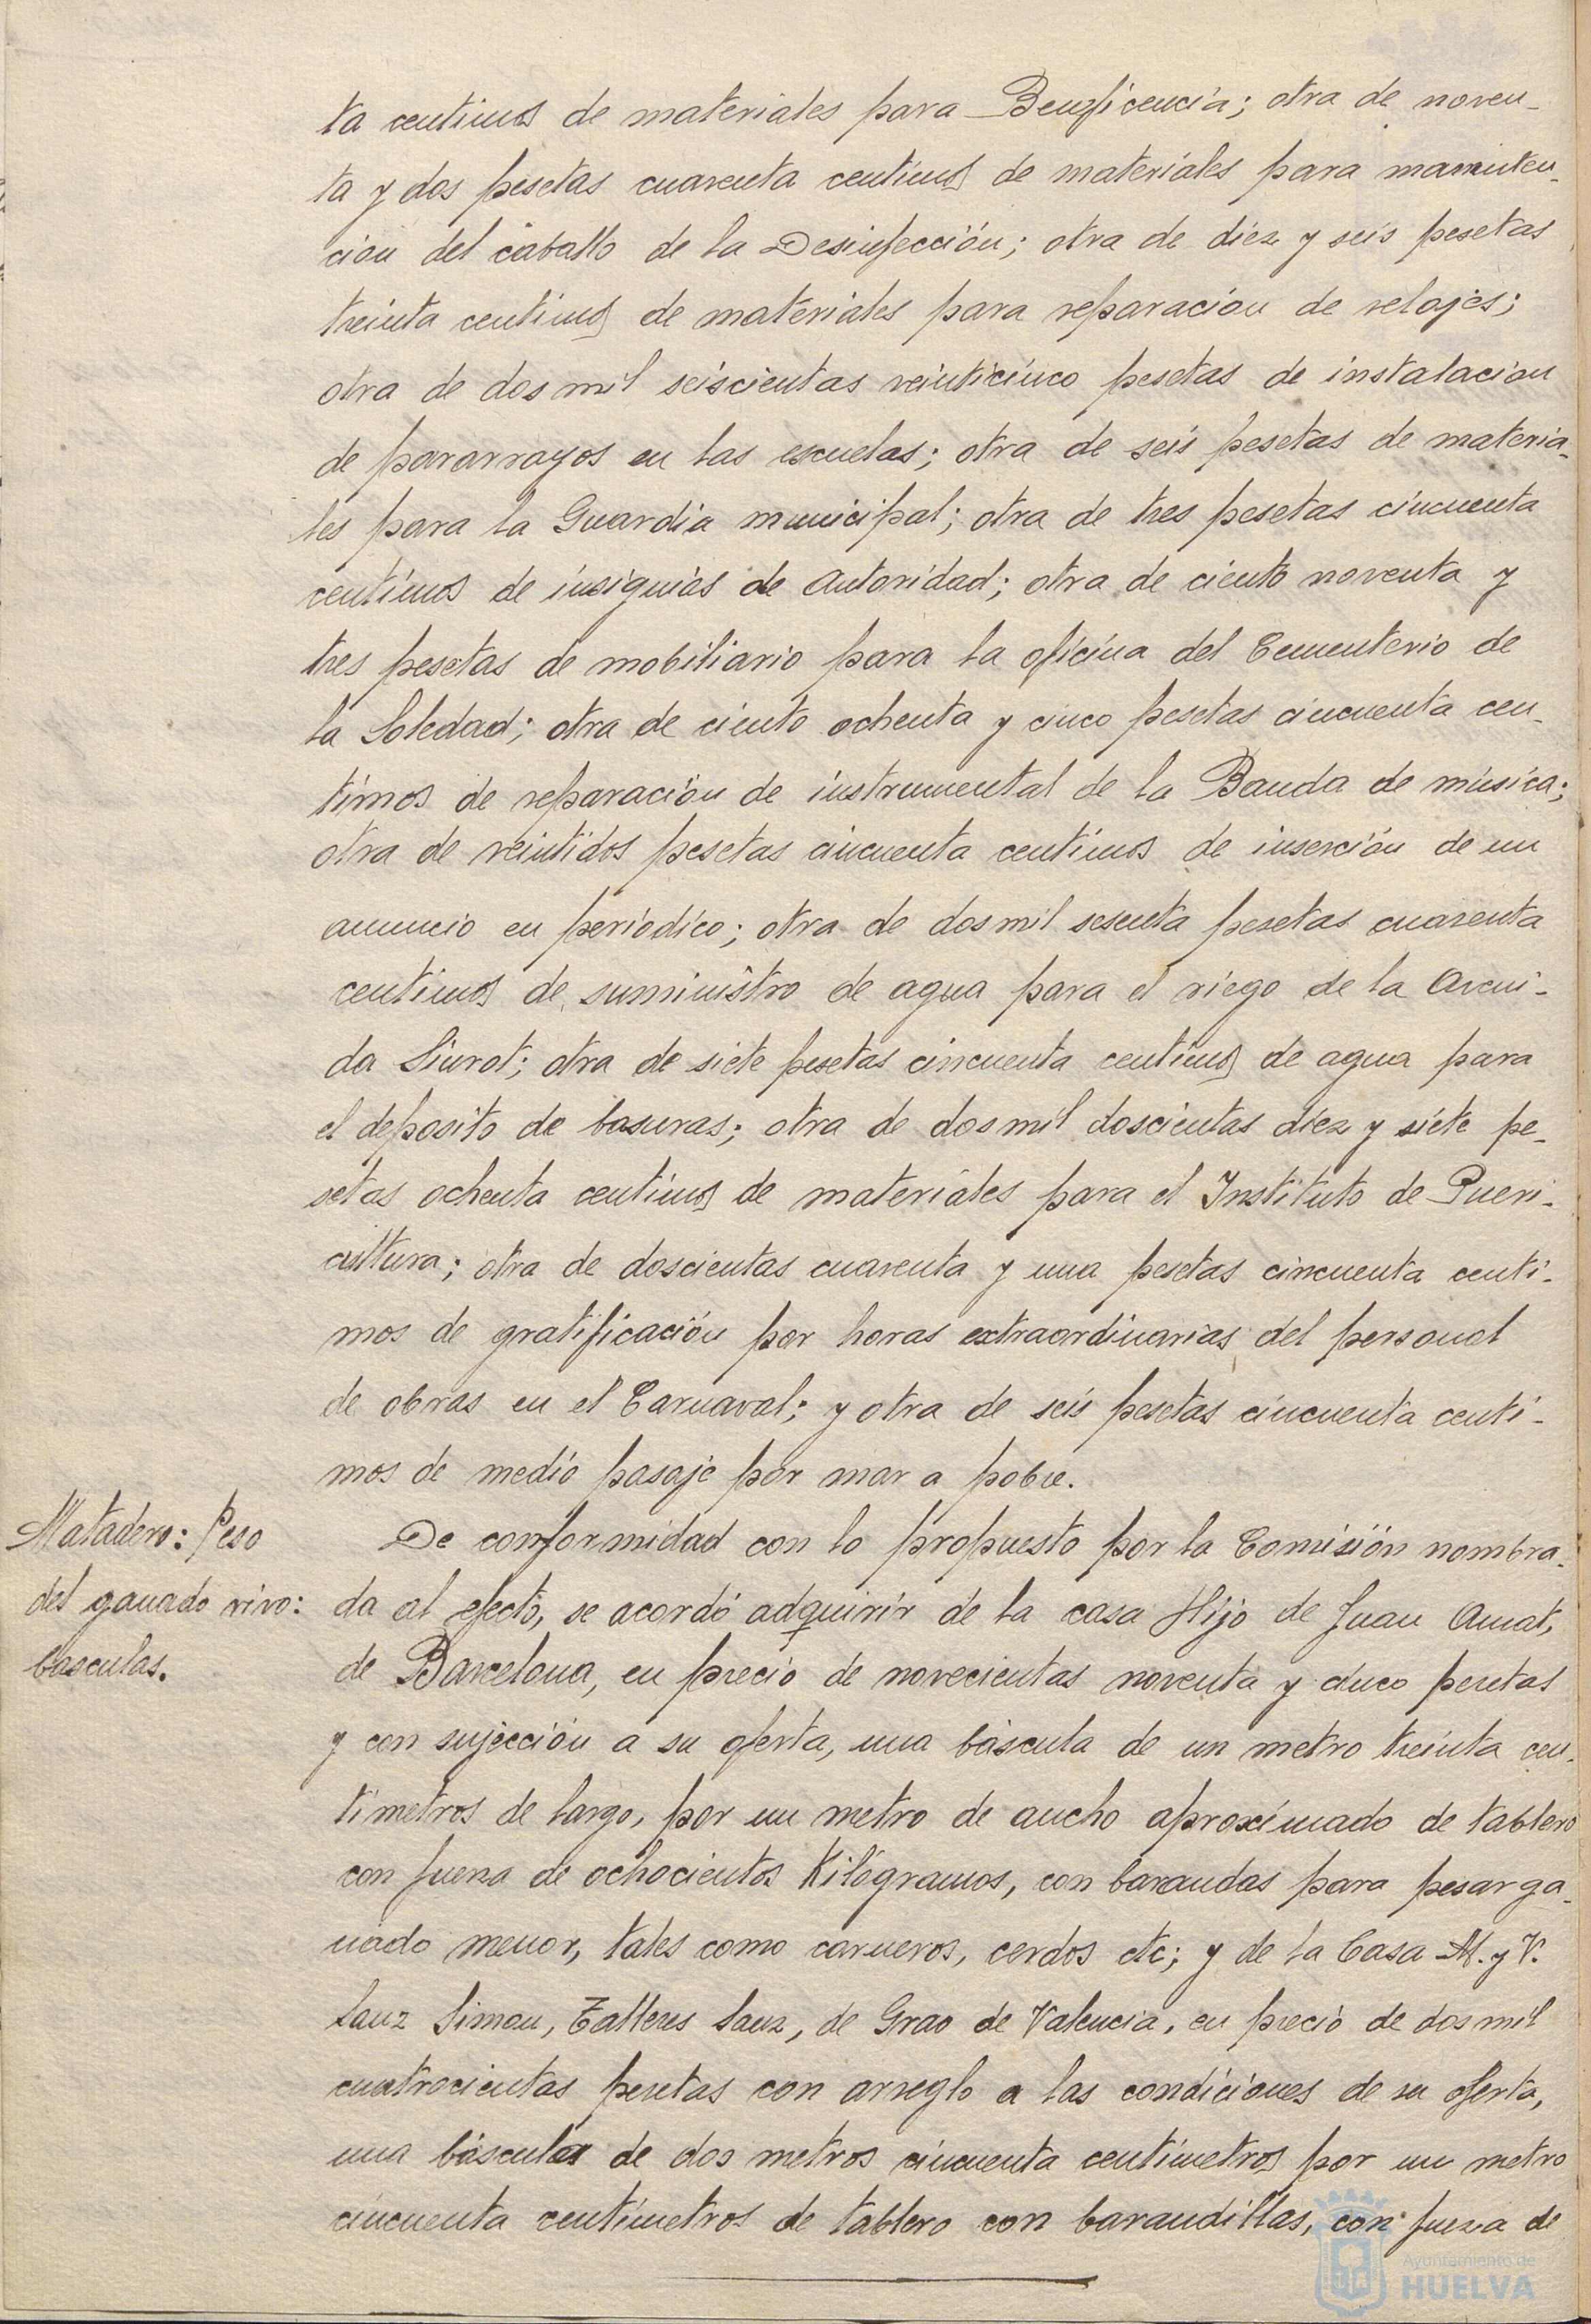 ta centimos de materiales para Beneficencia; otra de noven-
ta y dos pesetas cuarenta centimos de materiales para manuten-
cion del caballo de la Desinfección; otra de diez y seis pesetas
treinta centimos de materiales para reparacion de relojes;
otra de dos mil seiscientas veinticinco pesetas de instalacion
de pararrayos en las escuelas; otra de seis pesetas de materia-
les para la Guardia municipal; otra de tres pesetas cincuenta
centimos de insignias de Autoridad; otra de ciento noventa y
tres pesetas de mobiliario para la oficina del Cementerio de
la Soledad; otra de ciento ochenta y cinco pesetas cincuenta cen-
timos de reparación de instrumental de la Banda de música;
otra de veintidos pesetas cincuenta centimos de inserción de un
anuncio en periodico; otra de dos mil sesenta pesetas cuarenta
centimos de suministro de agua para el riego de la Aveni-
da Siurot; otra de siete pesetas cincuenta centimos de agua para
el deposito de basuras; otra de dos mil doscientas diez y siete pe-
setas ochenta centimos de materiales para el Instituto de Pueri-
cultura; otra de doscientas cuarenta y una pesetas cincuenta centi-
mos de gratificación por horas extraordinarias del personal
de obras en el Carnaval; y otra de seis pesetas cincuenta centi-
mos de medio pasaje por mar a pobre.
Matadero: Peso
del ganado vivo:
basculas.
De conformidad con lo propuesto por la Comisión nombra-
da al efecto, se acordó adquirir de la casa Hijo de Juan Amat,
de Barcelona, en precio de novecientas noventa y cinco pesetas
y con sujección a su oferta, una báscula de un metro treinta cen-
timetros de largo, por un metro de ancho aproximado de tablero
con fuerza de ochocientos Kilógramos, con barandas para pesar ga-
nado menor, tales como carneros, cerdos etc; y de la Casa M. y V.
Sanz Simon, Talleres Sanz, de Grao de Valencia, en precio de dos mil
cuatrocientas pesetas con arreglo a las condiciones de su oferta,
una báscula de dos metros cincuenta centímetros por un metro
cincuenta centímetros de tablero con barandillas, con fuerza de
Ayuntamiento de
HUELVA